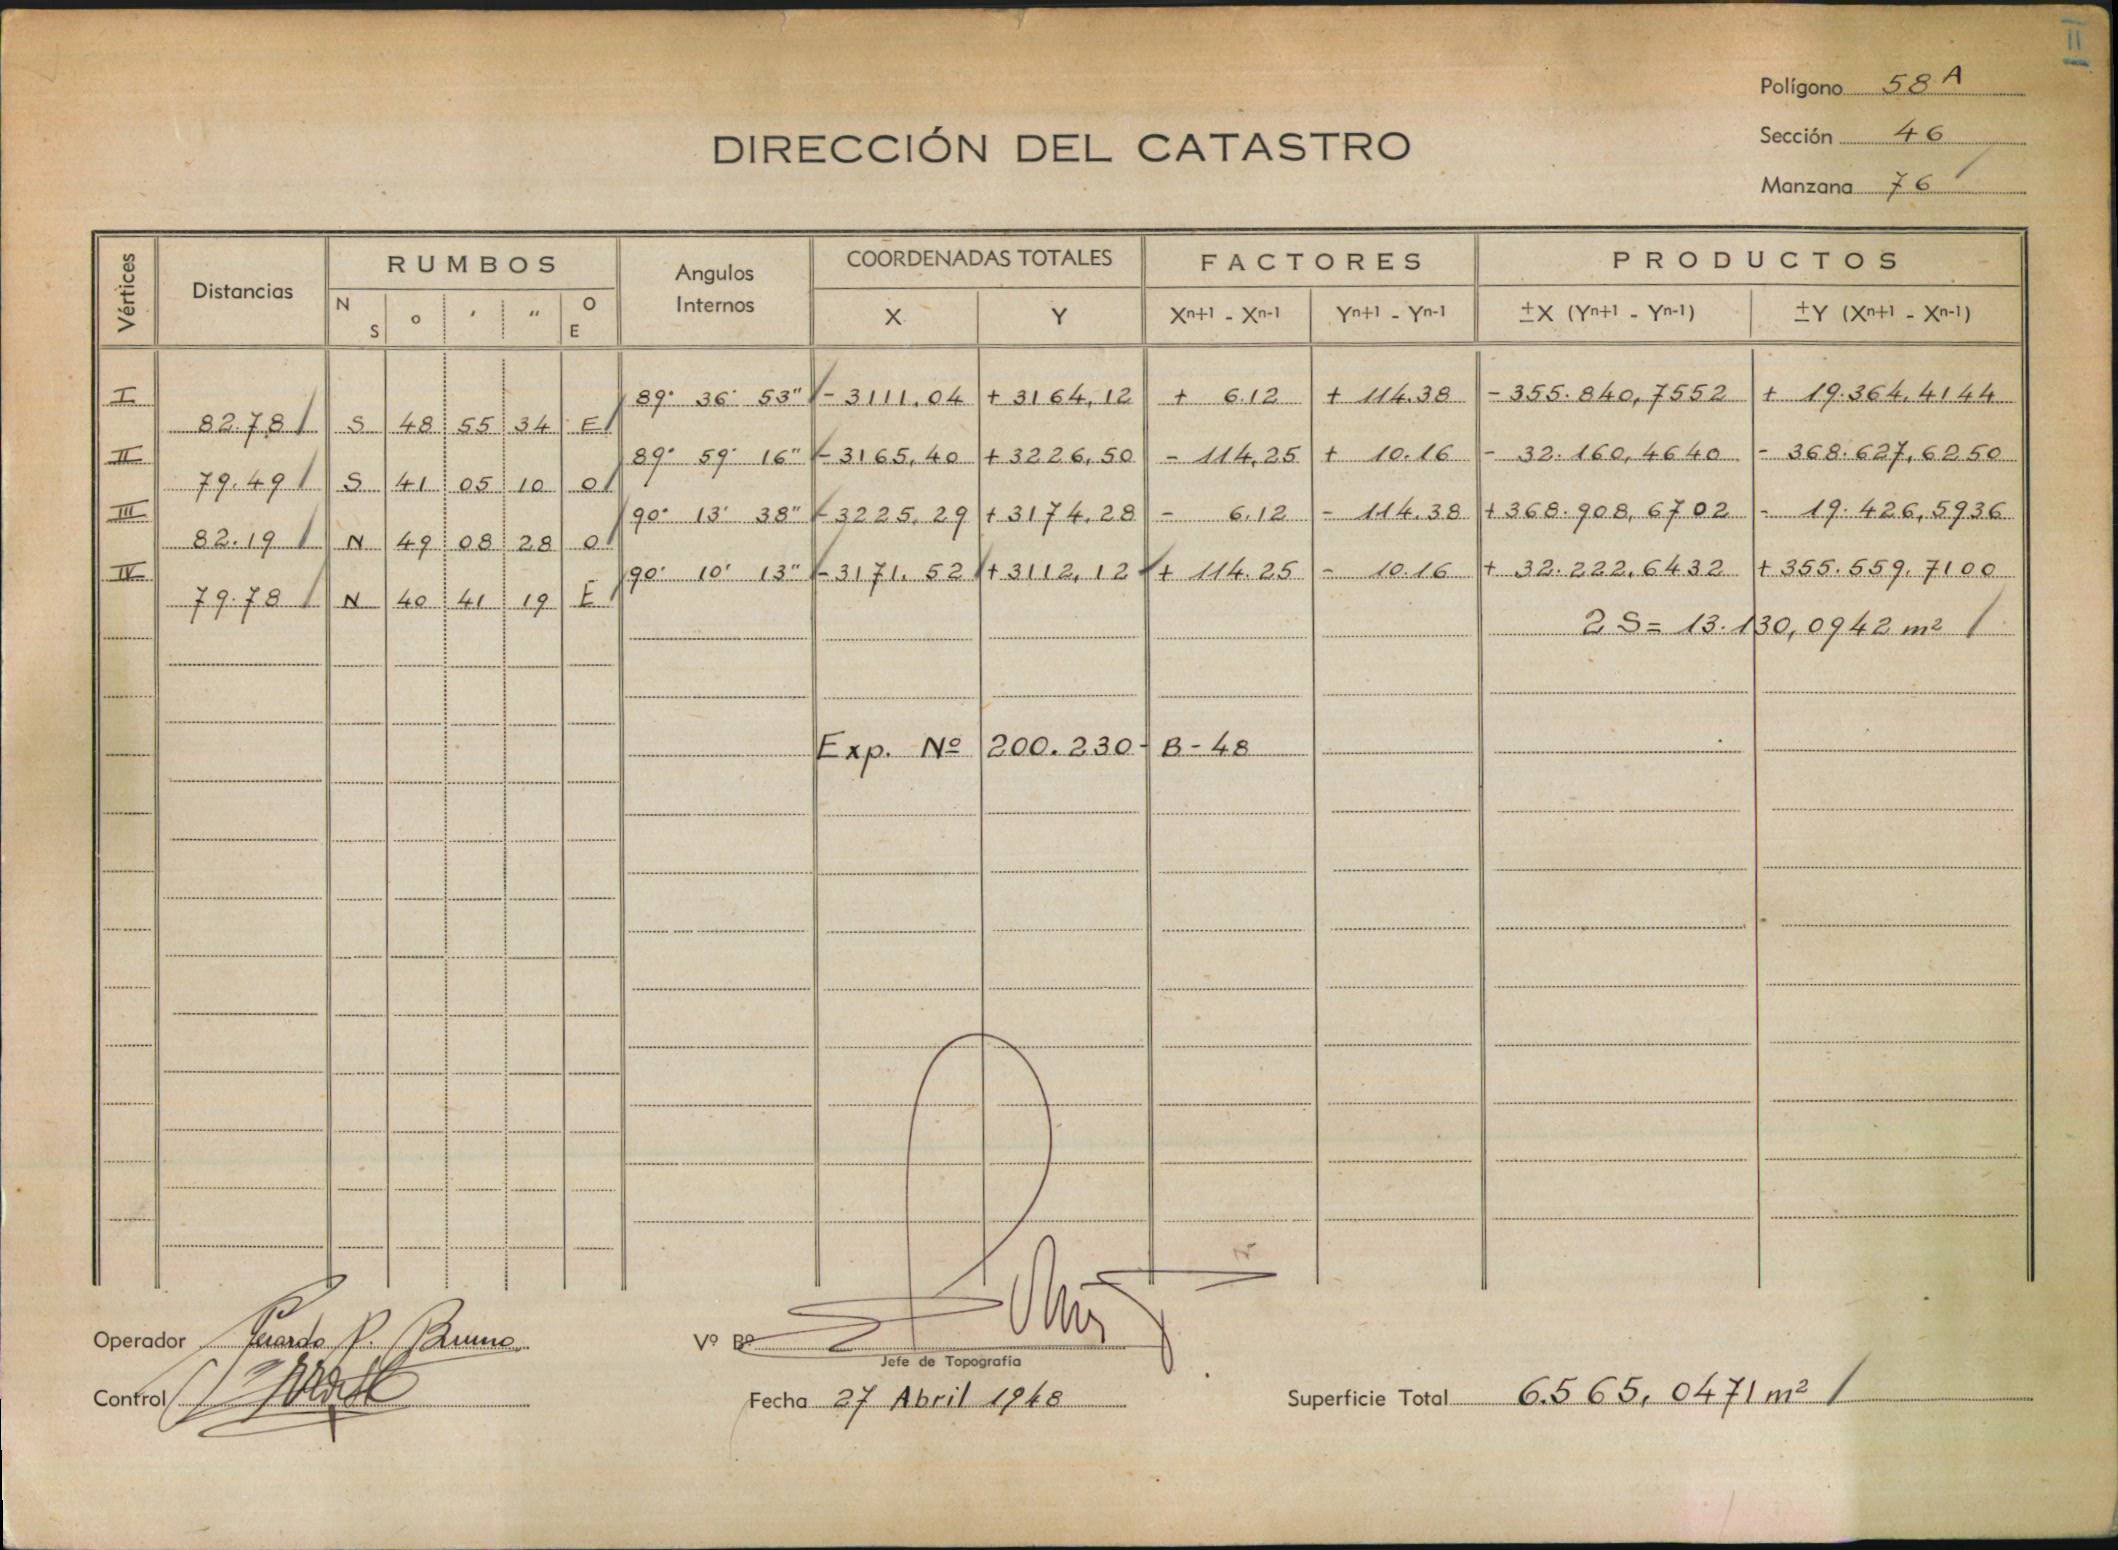 Polígono 58 A
DIRECCIÓN DEL CATASTRO
Sección 46
Manzana 76
Vértices Distancias RUMBOS Angulos Internos COORDENADAS TOTALES FACTORES PRODUCTOS
N S o ' " O E X Y Xn+1 - Xn-1 Yn+1 - Yn-1 ±X (Yn+1 - Yn-1) ±Y (Xn+1 - Xn-1)
I 89° 36' 53" - 3111,04 + 3164,12 + 6.12 + 114.38 - 355.840,7552 + 19.364,4144
82.78 S 48 55 34 E
II 89° 59' 16" - 3165,40 + 3226,50 - 114,25 + 10.16 - 32.160,4640 - 368.627,6250
79.49 S 41 05 10 O
III 90° 13' 38" - 3225,29 + 3174,28 - 6.12 - 114.38 + 368.908,6702 - 19.426,5936
82.19 N 49 08 28 O
IV 90° 10' 13" - 3171,52 + 3112,12 + 114.25 - 10.16 + 32.222,6432 + 355.559,7100
79.78 N 40 41 19 E
2 S = 13.130,0942 m²
Exp. Nº 200.230 - B - 48
Operador Gerardo P. Bruno
Vº Bº
Jefe de Topografía
Control
Fecha 27 Abril 1948
Superficie Total 6.565,0471 m²